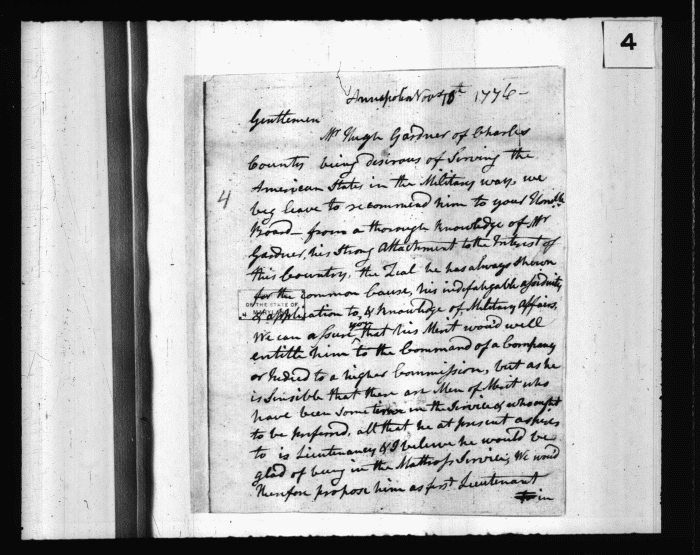 4
Annapolis Nov.r 10th 1776 -
Gentlemen
Mr Hugh Gardner of Charles
County being desirous of Serving the
American States in the Military way, we
beg leave to recommend him to your Honble
Board - from a thorough Knowledge of Mr
Gardner, his Strong Attachment to the Interest of
this Country, the Zeal he has always Shewn
for the common Cause, his indefatigable assiduity
& application to, & Knowledge of Military Affairs,
We can assure you that his Merit would well
entitle him to the Command of a Company
or Indeed to a higher Commission, but as he
is Sinsible that there are Men of Merit who
have been some time in the Service & who ought
to be preferred, all that he at present aspires
to is Lieutenancy & I believe he would be
glad of being in the Mattross Service; We would
therefore propose him as first Lieutenant
in
4
OF THE STATE OF